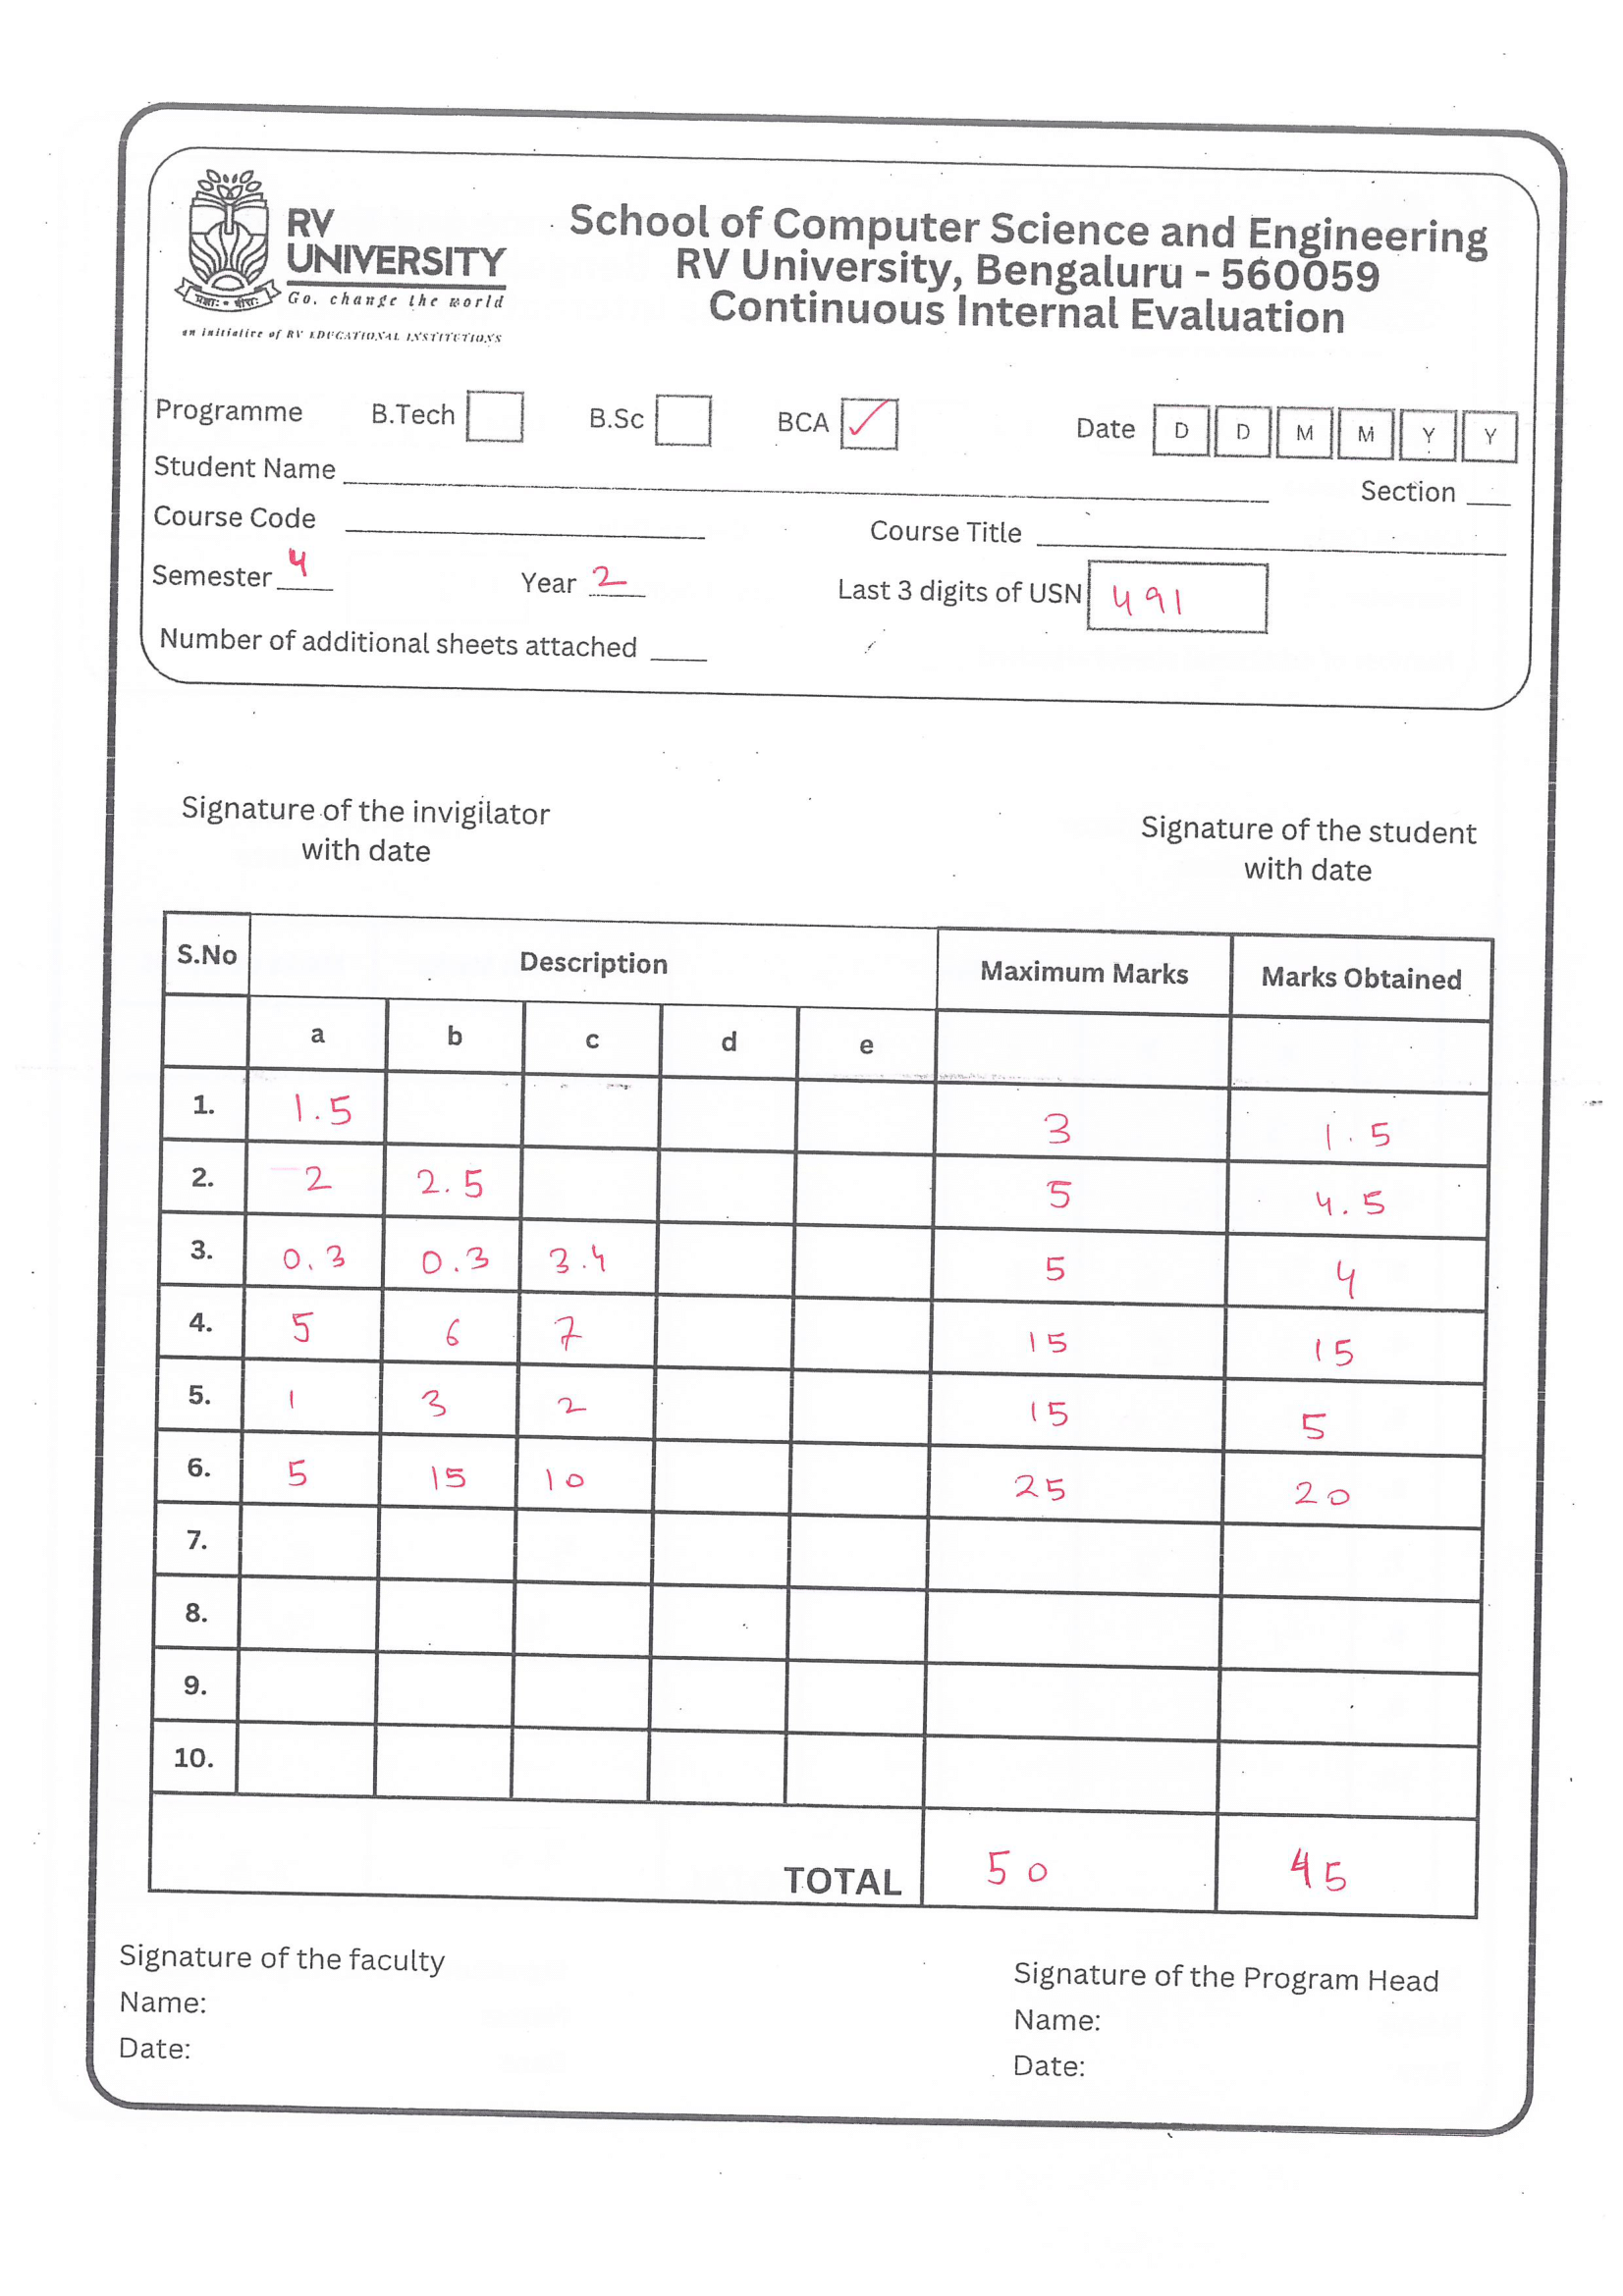 RV
UNIVERSITY
Go, change the world
an initiative of RV EDUCATIONAL INSTITUTIONS
School of Computer Science and Engineering
RV University, Bengaluru - 560059
Continuous Internal Evaluation
Programme B.Tech B.Sc BCA ✓ Date D D M M Y Y
Student Name Section
Course Code Course Title
Semester 4 Year 2 Last 3 digits of USN 491
Number of additional sheets attached
Signature of the invigilator
with date
Signature of the student
with date
S.No Description Maximum Marks Marks Obtained
a b c d e
1. 1.5 3 1.5
2. 2 2.5 5 4.5
3. 0.3 0.3 3.4 5 4
4. 5 6 7 15 15
5. 1 3 2 15 5
6. 5 15 10 25 20
7.
8.
9.
10.
TOTAL 50 45
Signature of the faculty
Name:
Date:
Signature of the Program Head
Name:
Date: